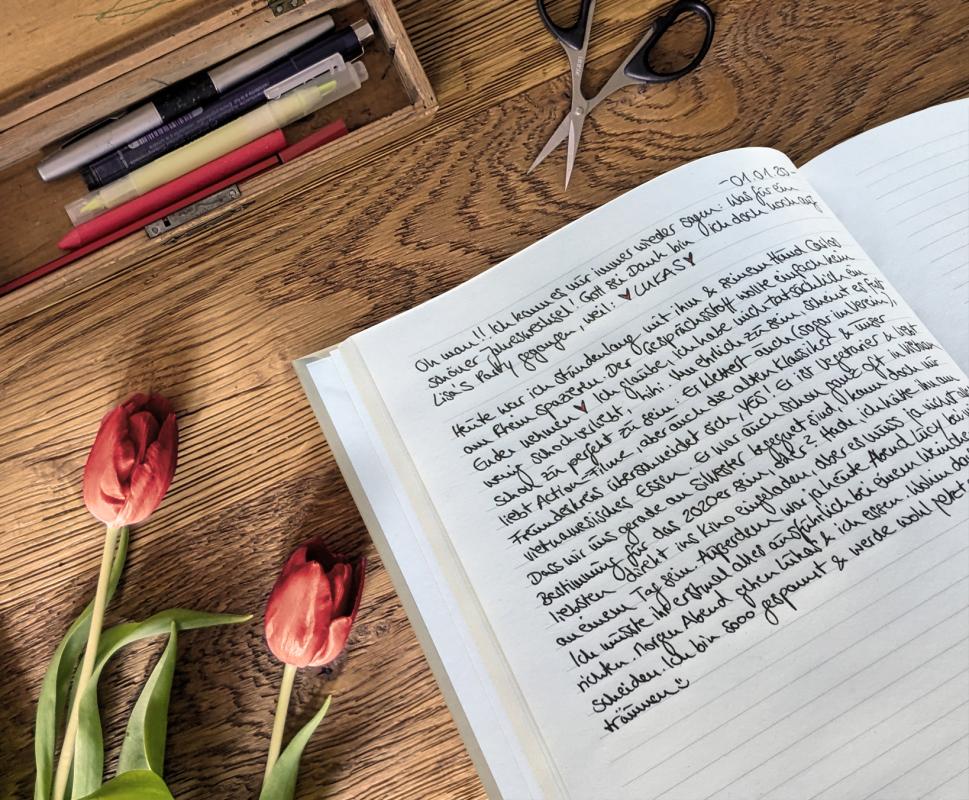 -01.01.20
Oh man!! Ich kann es mir immer wieder sagen: Was für ein
schöner Jahreswechsel! Gott sei Dank bin ich doch noch auf
Lisa's Party gegangen, weil: ♥LUKAS♥
Heute war ich stundenlang mit ihm & seinem Hund Carlos
am Rhein spazieren. Der Gesprächsstoff wollte einfach kein
Ende nehmen ♥ Ich glaube, ich habe mich tatsächlich ein
wenig schockverliebt, hihi. Um ehrlich zu sein, scheint es fast
schon zu perfekt zu sein: Er klettert auch (sogar im Verein),
liebt Action-Filme, aber auch die alten Klassiker & unser
Freundeskreis überschneidet sich. YES! Er ist Vegetarier & liebt
vietnamesisches Essen. Er war auch schon ganz oft in
Dass wir uns gerade an Silvester begegnet sind, kann doch nur
Bestimmung für das 2020er sein, oder? Hade, ich hätte ihn am
liebsten direkt ins Kino eingeladen, aber es muss ja nicht
an einem Tag sein. Außerdem war ja heute Abend Lucy bei
Ich musste ihr erstmal alles ausführlich bei einem
richten. Morgen Abend gehen Lukas & ich essen. Wohin darf
scheiden. Ich bin sooo gespannt & werde wohl jetzt
träumen